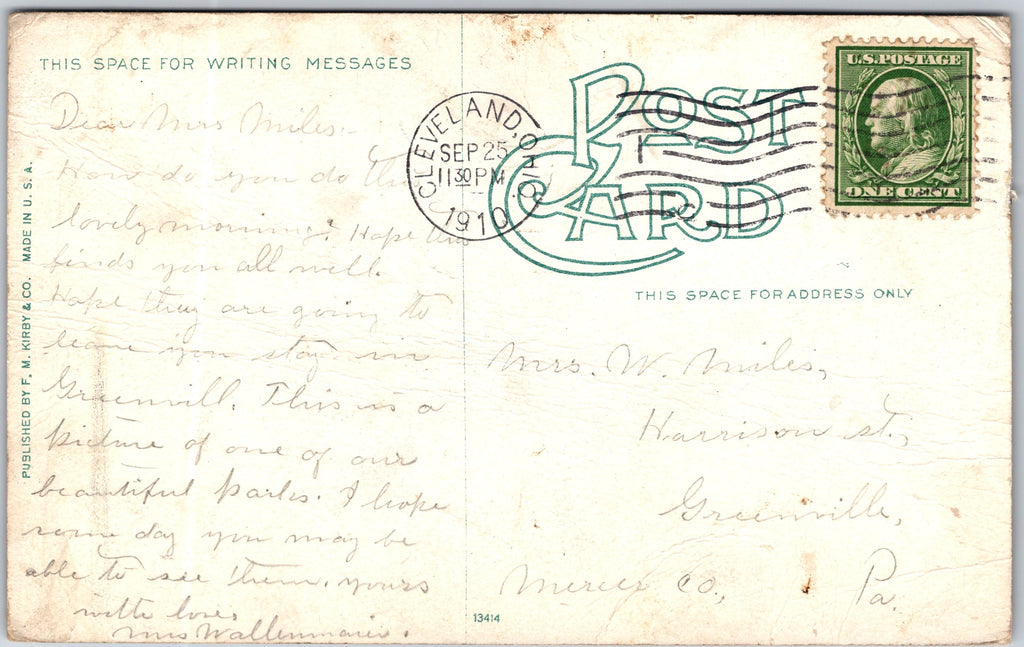 THIS SPACE FOR WRITING MESSAGES
Dear Mrs Miles:-
How do you do this
lovely morning? Hope this
finds you all well.
Hope they are going to
leave you stay in
Greenvill. This is a
picture of one of our
beautiful parks. I hope
some day you may be
able to see them. yours
with love,
Mrs Wallenmaier.
PUBLISHED BY F. M. KIRBY & CO. MADE IN U. S. A.
CLEVELAND, OHIO
SEP 25
11 30 PM
1910
POST
CARD
U.S. POSTAGE
ONE CENT
THIS SPACE FOR ADDRESS ONLY
Mrs. W. Miles,
Harrison st,
Greenville,
Mercer Co., Pa.
13414